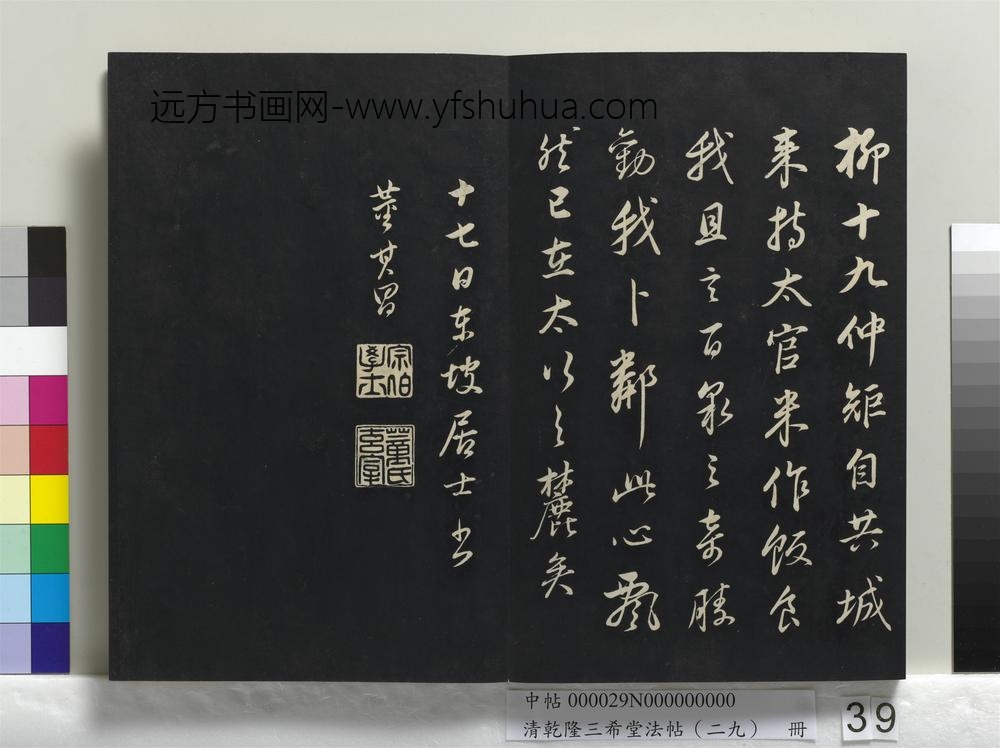 远方书画网-www.yfshuhua.com
柳十九仲矩自共城
来持太官米作飯食
我且言百泉之奇勝
勸我卜鄰此心飄
然已在太行之麓矣
十七日東坡居士書
董其昌
宗伯學士
董氏玄宰
中帖 000029N000000000
清乾隆三希堂法帖（二九） 冊
39